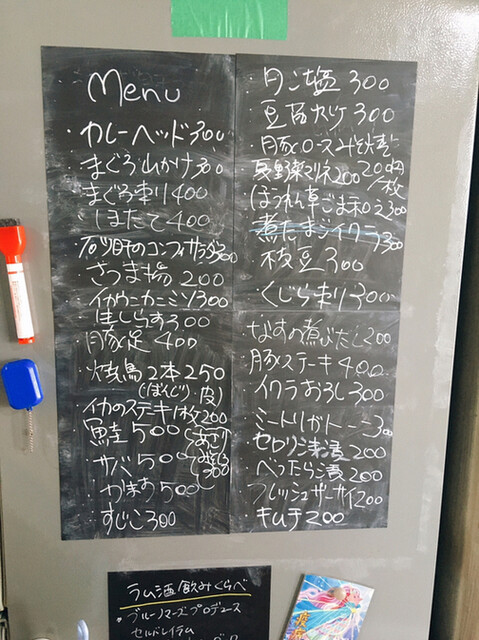 Menu
・カレーヘッド300
・まぐろ山かけ300
・まぐろ刺 400
・ほたて 400
のコンフィサラダ300
・さつま揚 200
・イカウニカニミソ300
・釜しらす300
・豚足 400
・焼鳥2本250
(ぼんじり・皮)
・イカのステーキ1枚200
・鮭 500
・サバ 500
・かまあ500
・すじこ300
・タン塩 300
・豆腐 300
・豚ロースみそ焼き
200円/枚
・夏野菜マリネ200
・ほうれん草ごま和え200
・煮たまごイクラ300
・枝豆300
・くじら刺り300
・なすの煮びたし200
・豚ステーキ400
・イクラおろし300
・ミートリガトーニ300
・セロリ浅漬200
・べったら漬200
・フレッシュザーサイ200
・キムチ200
ラム酒飲みくらべ
・ブルーノマーズプロデュース
セルバレイテム